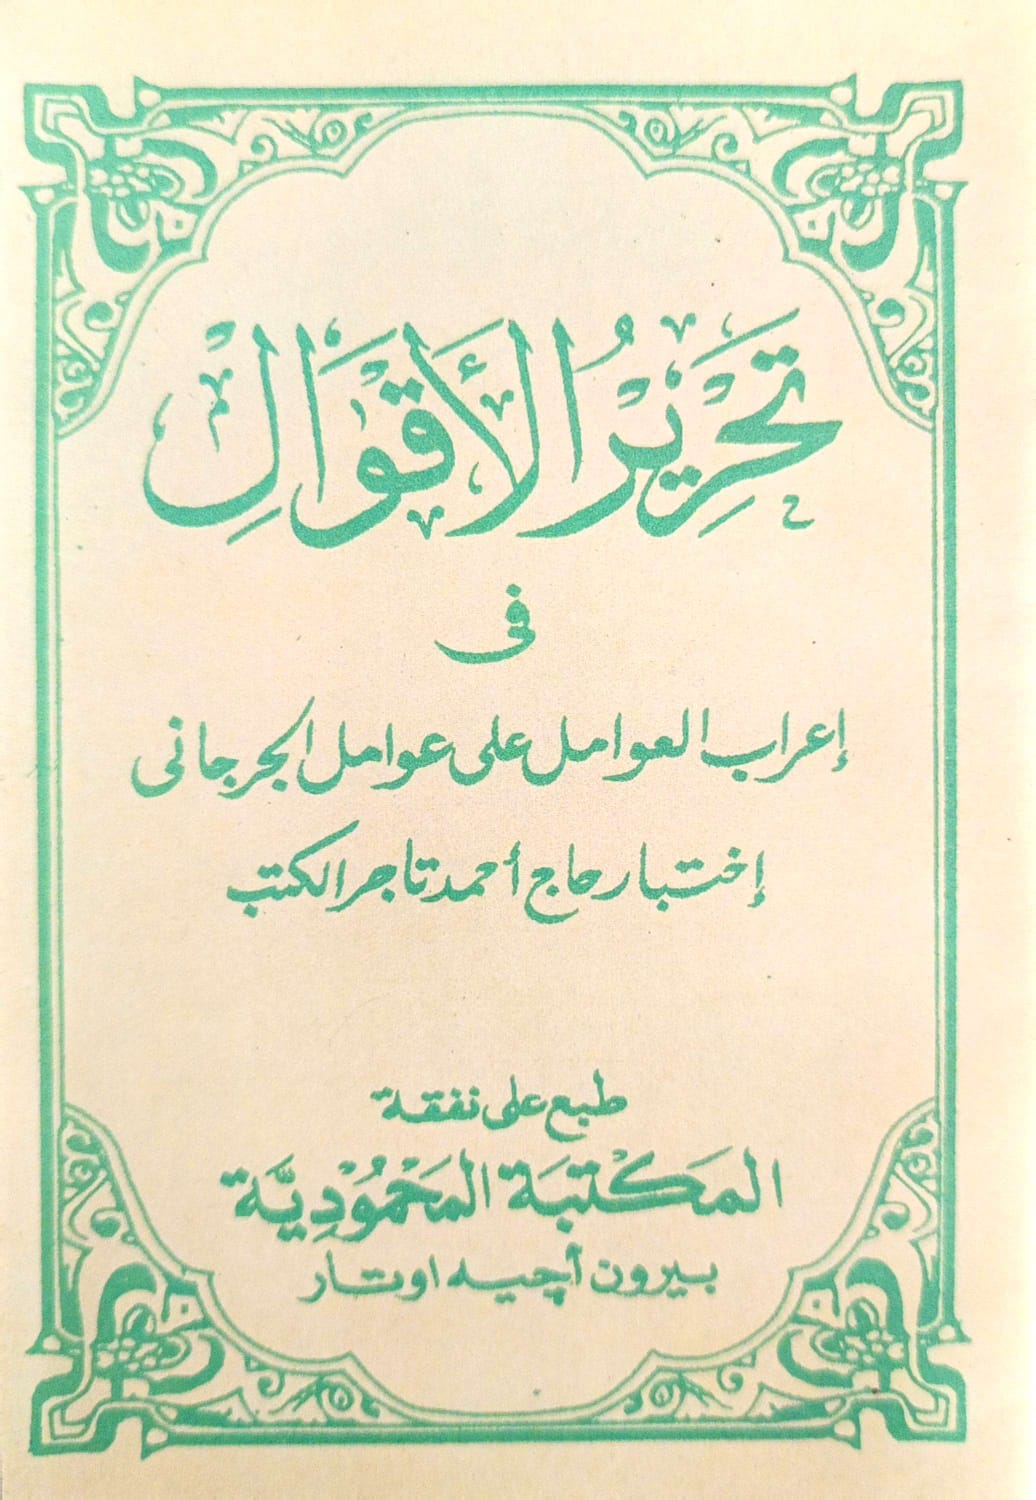 تَحْرِيْرُ الْأَقْوَالِ
فى
إعراب العوامل على عوامل الجرجانى
إختبار حاج أحمد تاجر الكتب
طبع على نفقة
المَكْتبَة المَحْمُوْدِيَّة
بيرون آچيه اوتار